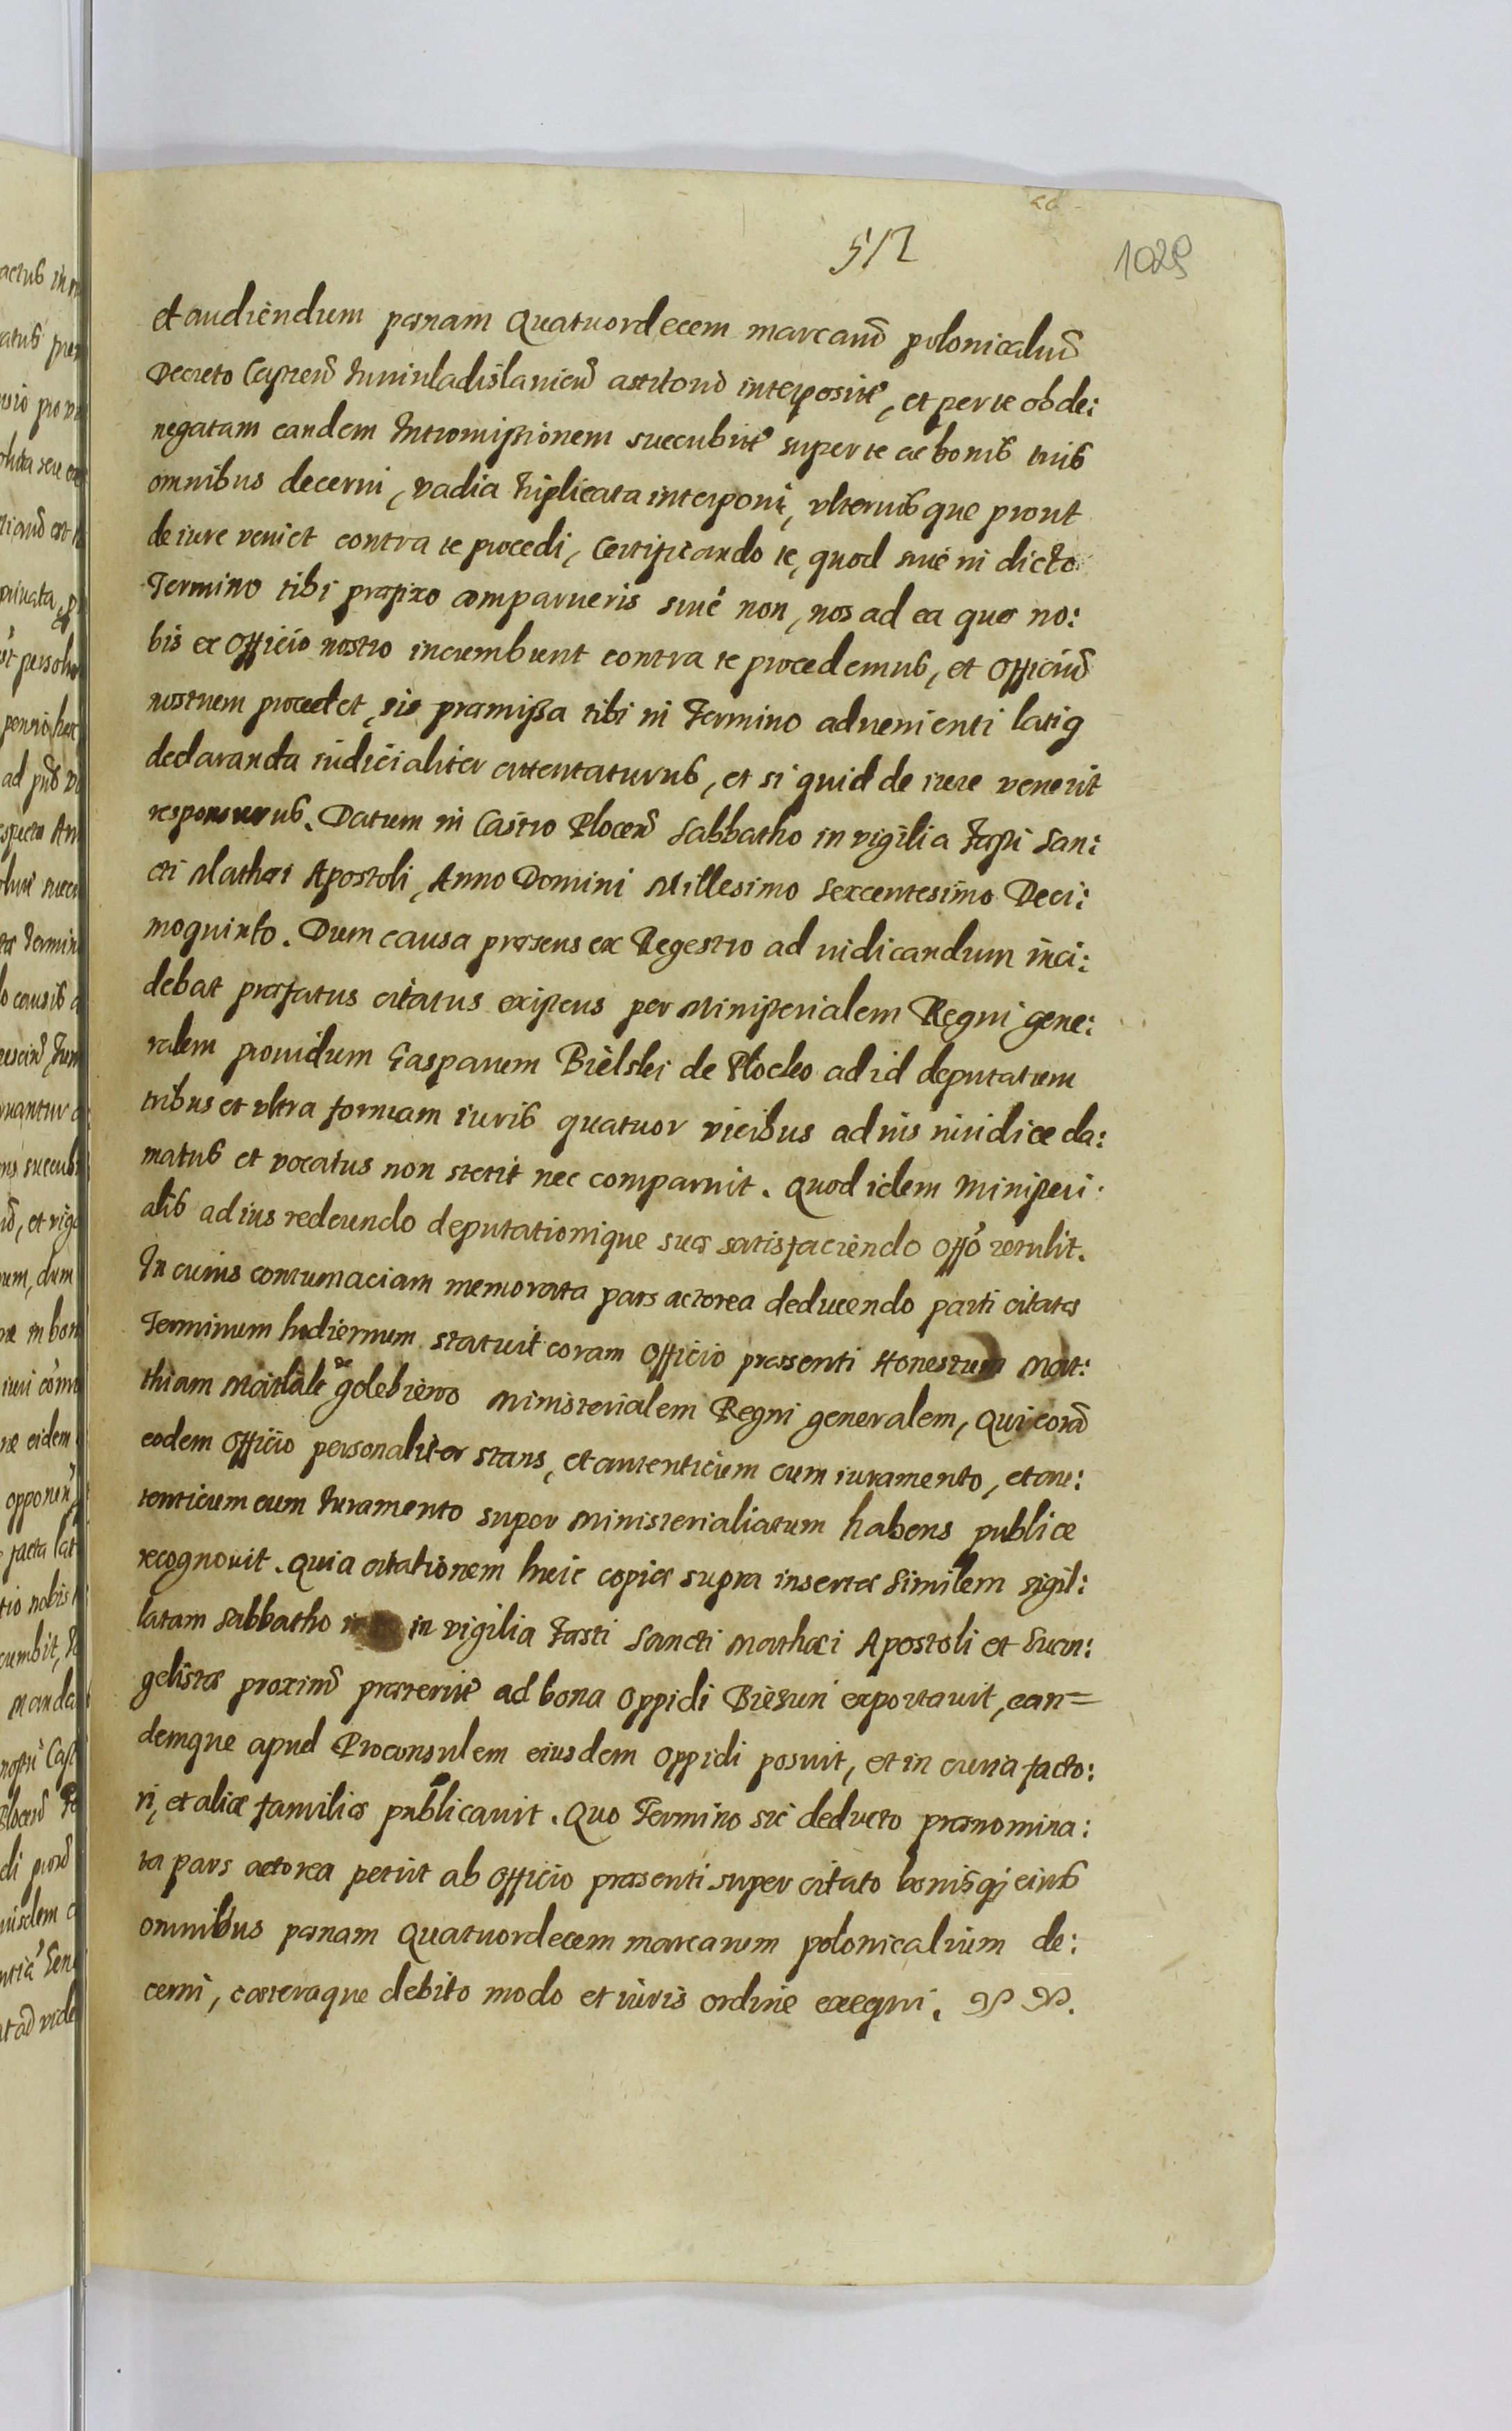 512
1029
et audiendum pœnam Quatuordecem marcarũ polonicaliũ
Decreto Capten̄ Iuniuladislauien̄ actitorũ interpositẽ, et per te obde:
negatam eandem Intromißionem succubitẽ super te ac bonis tuis
omnibus decerni, vadia triplicata interponi, vlteriusque prout
de iure veniet contra te procedi, Certificando te, quod siue in dicto
Termino tibi præfixo comparueris siue non, nos ad ea quæ no:
bis ex Officio nostro incumbunt contra te procedemus, et Officiũ
nostrum procedet, sis præmißa tibi in Termino aduenienti latiꝗ
declaranda iudicialiter attentaturus, et si quid de iure venerit
responsurus. Datum in Castro Plocen̄ Sabbatho in vigilia Festi San:
cti Mathæi Apostoli, Anno Domini Millesimo Sexcentesimo Deci:
moquinto. Dum causa præsens ex Regestro ad iudicandum inci:
debat præfatus citatus existens per Ministerialem Regni gene:
ralem prouidum Gasparem Bielski de Plocko ad id deputatum
tribus et vltra formam iuris quatuor vicibus ad ius iuridice cla:
matus et vocatus non stetit nec comparuit. Quod idem Ministeri:
alis ad ius redeundo deputationique suæ satisfaciendo Offo retulit.
In cuius contumaciam memorata pars actorea deducendo parti citatæ
Terminum hodiernum statuit coram Officio præsenti Honestum Mat:
thiam de golebiewo Ministerialem Regni generalem, Qui corã
eodem Officio personaliter stans, et autenticum cum iuramento, et au:
tenticum cum Iuramento super Ministerialiatum habens publice
recognouit. Quia citationem huic copiæ supra insertæ Similem sigil:
latam Sabbatho in vigilia Festi Sancti Mathæi Apostoli et Euan:
gelistæ proximẽ præteritẽ ad bona Oppidi Bieżun exportauit, ean=
demque apud Proconsulem eiusdem Oppidi posuit, et in curia facto:
ri, et aliæ familiæ publicauit. Quo Termino sic deducto prænomina:
ta pars actorea petiit ab Officio præsenti super citato bonisqꝫ eius
omnibus pœnam Quatuordecem marcarum polonicalium de:
cerni, cæteraque debito modo et iuris ordine exequi.